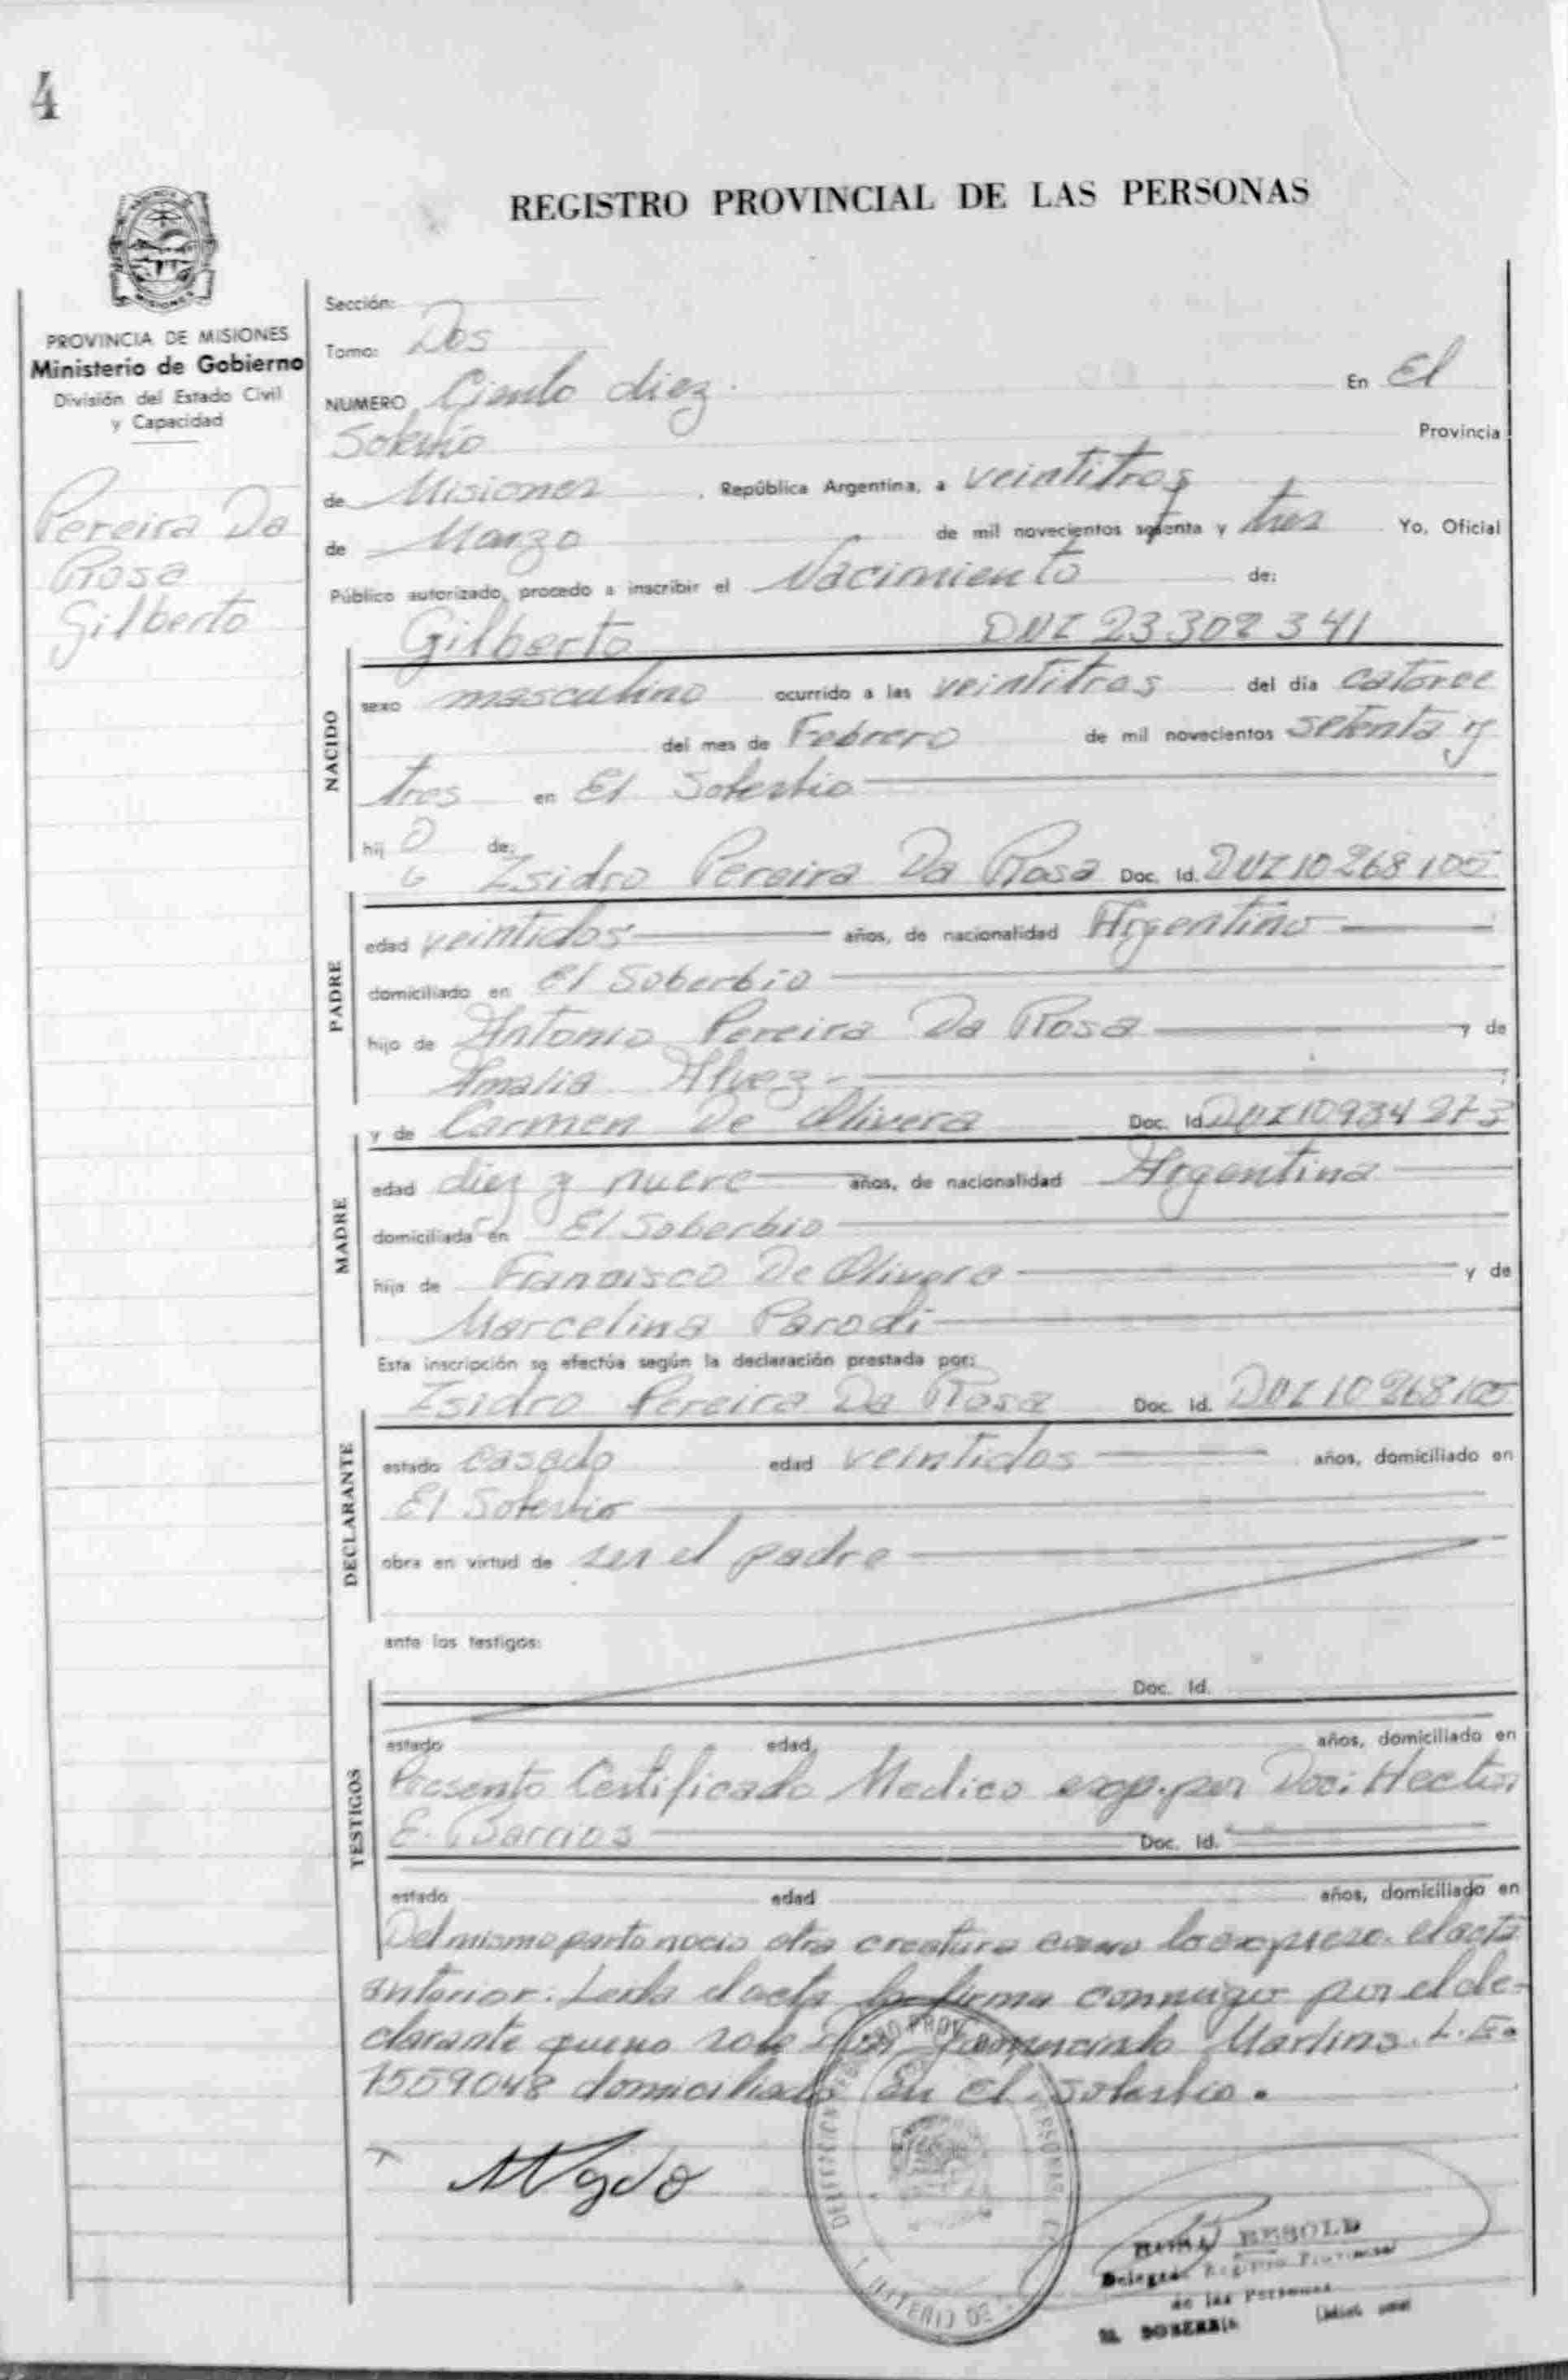 4
REGISTRO PROVINCIAL DE LAS PERSONAS
MISIONES
PROVINCIA DE MISIONES
Ministerio de Gobierno
División del Estado Civil
y Capacidad
Pereira Da
Rosa
Gilberto
Sección:
Tomo: Dos
NUMERO Ciento diez. En El
Soberbio Provincia
de Misiones, República Argentina, a veintitres
de Marzo de mil novecientos setenta y tres Yo, Oficial
Público autorizado, procedo a inscribir el Nacimiento de:
Gilberto DNI 23.302.341
NACIDO
sexo masculino ocurrido a las veintitres del día catorce
del mes de Febrero de mil novecientos setenta y
tres en El Soberbio
hij o de:
Isidro Pereira Da Rosa Doc. Id. DNI 10268105
PADRE
edad veintidos años, de nacionalidad Argentino
domiciliado en El Soberbio
hijo de Antonio Pereira Da Rosa y de
Amalia Alvez
y de Carmen De Olivera Doc. Id. DNI 10934273
MADRE
edad diez y nueve años, de nacionalidad Argentina
domiciliada en El Soberbio
hija de Francisco De Olivera y de
Marcelina Parodi
Esta inscripción se efectúa según la declaración prestada por:
Isidro Pereira Da Rosa Doc. Id. DNI 10268105
DECLARANTE
estado casado edad veintidos años, domiciliado en
El Soberbio
obra en virtud de ser el padre
ante los testigos:
Doc. Id.
TESTIGOS
estado edad años, domiciliado en
Presento Certificado Medico exp. por Doc: Hector
E. Barrios Doc. Id.
estado edad años, domiciliado en
Del mismo parto nacio otra creatura como lo expreza el acta
anterior: Leida el acta la firma conmigo por el de-
clarante que no sabe Martins. L. E.
7559048 domiciliado en El Soberbio.
BESOLD
Delegado Registro Provincial
de las Personas
EL SOBERBIO